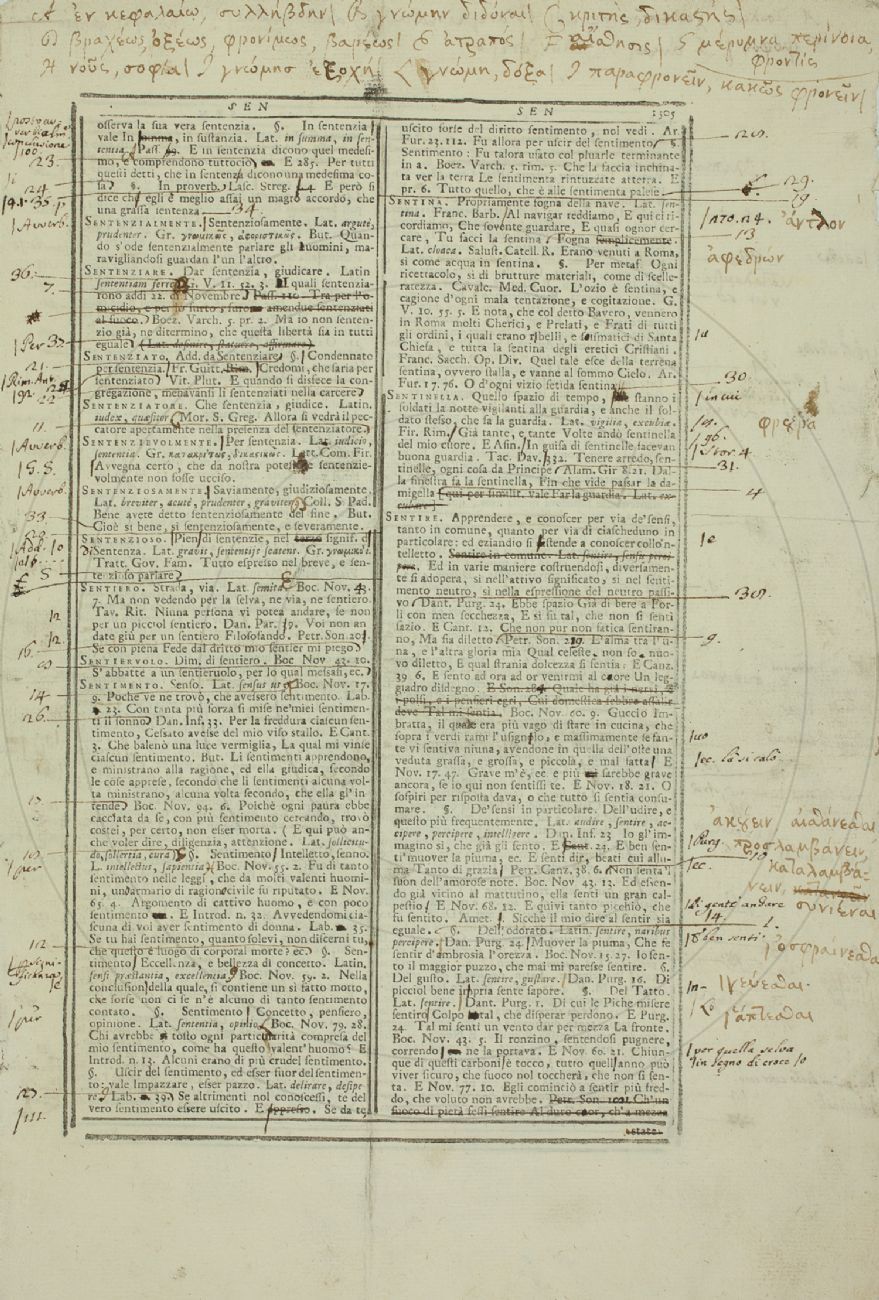 ἐν κεφαλαίῳ, συλλήβδην γνώμην διδόναι κριτής, δικαστής
βραχέως, ὀξέως, φρονίμως, βαρέως ἀτραπός αἴσθησις μέριμνα, περίνοια,
φροντίς
νοῦς, σοφία γνώμης ἐξοχή γνώμη, δόξα παραφρονεῖν, κακῶς φρονεῖν
SEN SEN 1505
osserva la sua vera sentenzia. §. In sentenzia
vale In somma, in sustanzia. Lat. in summa, in sen-
tentia. Pass. E in sentenzia dicono quel medesi-
mo, e comprendono tuttociò E 285. Per tutti
questi detti, che in sentenzia dicono una medesima co-
sa §. In proverb. Lasc. Streg. E però si
dice ch' egli è meglio assai un magro accordo, che
una grassa sentenza 34.
SENTENZIALMENTE. Sentenziosamente. Lat. argute,
prudenter. Gr. But. Quan-
do s'ode sentenzialmente parlare gli uomini, ma-
ravigliandosi guardan l'un l'altro.
SENTENZIARE. Dar sentenzia, giudicare. Latin
sententiam ferre G. V. 11. 52. 3. I quali sentenzia-
rono addì 22. di Novembre Pass. 110. Tra per l'o-
micidio, e per lo furto, furono amendue sentenziati
al fuoco. Boez. Varch. 5. pr. 2. Ma io non senten-
zio già, ne ditermino, che questa libertà sia in tutti
eguale (Lat. definire, statuere, affirmare)
SENTENZIATO, Add. da Sentenziare §. Condennato
per sentenzia. Fr. Guitt. Rim. Credomi, che saria per
sentenziato Vit. Plut. E quando si disfece la con-
gregazione, menavansi li sentenziati nella carcere
SENTENZIATORE. Che sentenzia, giudice. Latin.
iudex, quæsitor Mor. S. Greg. Allora si vedrà il pec-
catore apertamente nella presenza del sentenziatore
SENTENZIEVOLMENTE. Per sentenzia. Lat. iudicio,
sententia. Gr. κατακρίτως, δικαστικῶς. Lett. Com. Fir.
Avvegna certo, che da nostra potestade sentenzie-
volmente non fosse ucciso.
SENTENZIOSAMENTE. Saviamente, giudiziosamente.
Lat. breviter, acute, prudenter, graviter Coll. S Pad.
Bene avete detto sentenziosamente del fine. But.
Cioè sì bene, sì sentenziosamente, e severamente.
SENTENZIOSO. Pien di sentenzie, nel terzo signif. di
Sentenza. Lat. gravis, sententiis scatens. Gr. γνωμικός.
Tratt. Gov. Fam. Tutto espresso nel breve, e sen-
tenzioso parlare
SENTIERO. Strada, via. Lat. semita Boc. Nov. 43.
7. Ma non vedendo per la selva, ne via, ne sentiero.
Tav. Rit. Niuna persona vi potea andare, se non
per un picciol sentiero. Dan. Par. Voi non an-
date giù per un sentiero Filosofando. Petr. Son. 20
Se con piena Fede dal dritto mio sentier mi piego
SENTIERVOLO. Dim. di sentiero. Boc Nov 43. 10.
S'abbattè a un sentieruolo, per lo qual messasi, ec.
SENTIMENTO. Senso. Lat. sensus us Boc. Nov. 17.
9. Poche ve ne trovò, che avessero sentimento. Lab.
23. Con tanta più forza si mise ne' miei sentimen-
ti il sonno Dan. Inf. 33. Per la freddura ciascun sen-
timento, Cessato avesse del mio viso stallo. E Cant.
3. Che balenò una luce vermiglia, La qual mi vinse
ciascun sentimento. But. Li sentimenti apprendono,
e ministrano alla ragione, ed ella giudica, secondo
le cose apprese, secondo che li sentimenti alcuna vol-
ta ministrano, alcuna volta secondo, che ella gl'in
tende Boc. Nov. 94. 6. Poichè ogni paura ebbe
cacciata da se, con più sentimento cercando, trovò
costei, per certo, non esser morta. ( E qui può an-
che voler dire, diligenzia, attenzione. Lat. sollicitu-
do, sollertia, cura §. Sentimento Intelletto, senno.
L. intellectus, sapientia Boc. Nov. 55. 2. Fu di tanto
sentimento nelle leggi, che da molti valenti huomi-
ni, un armario di ragion civile fu riputato. E Nov.
65. 4. Argomento di cattivo huomo, e con poco
sentimento E Introd. n. 32. Avvedendomi cia-
scuna di voi aver sentimento di donna. Lab. 35.
Se tu hai sentimento, quanto solevi, non discerni tu,
che questo è luogo di corporal morte? ec. §. Sen-
timento Eccellenza, e bellezza di concetto. Latin.
sensi præstantia, excellentia Boc. Nov. 59. 2. Nella
conclusion della quale, si contiene un sì fatto motto,
che forse non ci se n'è alcuno di tanto sentimento
contato. §. Sentimento Concetto, pensiero,
opinione. Lat. sententia, opinio Boc. Nov. 79. 28.
Chi avrebbe tosto ogni particularità compresa del
mio sentimento, come ha questo valent'huomo? E
Introd. n. 13. Alcuni erano di più crudel sentimento.
§. Uscir del sentimento, ed esser fuor del sentimen-
to: vale Impazzare, esser pazzo. Lat. delirare, desipe-
re Lab. 39 Se altrimenti nol conoscessi, te del
vero sentimento essere uscito. E appresso. Se da te
uscito fosse del diritto sentimento, nol vedi. Ar.
Fur. 23. 112. Fu allora per uscir del sentimento §.
Sentimento: Fu talora usato col plurale terminante
in a. Boez. Varch. 5. rim. 5. Che la faccia inchina-
ta ver la terra Le sentimenta rintuzzate atterra. E
pr. 6. Tutto quello, che è alle sentimenta palese
SENTINA. Propriamente fogna della nave. Lat. sen-
tina. Franc. Barb. Al navigar reddiamo, E qui ci ri-
cordiamo, Che sovente guardare, E quasi ognor cer-
care, Tu facci la sentina Fogna semplicemente.
Lat. cloaca. Salust. Catell. R. Erano venuti a Roma,
sì come acqua in sentina. §. Per metaf. Ogni
ricettacolo, sì di brutture materiali, come di scelle-
ratezza. Cavalc. Med. Cuor. L'ozio è sentina, e
cagione d'ogni mala tentazione, e cogitazione. G.
V. 10. 55. 5. E nota, che col detto Bavero, vennero
in Roma molti Cherici, e Prelati, e Frati di tutti
gli ordini, i quali erano ribelli, e scismatici di Santa
Chiesa, e tutta la sentina degli eretici Cristiani.
Franc. Sacch. Op. Div. Quel tale esce della terrena
sentina, ovvero stalla, e vanne al sommo Cielo. Ar.
Fur. 17. 76. O d'ogni vizio fetida sentina
SENTINELLA. Quello spazio di tempo, stanno i
soldati la notte vigilanti alla guardia, e anche il sol-
dato stesso, che fa la guardia. Lat. vigilia, excubiæ.
Fir. Rim. Già tante, e tante Volte andò sentinella
del mio cuore. E Asin. In guisa di sentinelle facevan
buona guardia. Tac. Dav. 332. Tenere arredo, sen-
tinelle, ogni cosa da Principe Alam. Gir 8. 21. Dal-
la finestra fa la sentinella, Fin che vide passar la da-
migella ( qui per similit. vale Far la guardia. Lat. ex-
cubare
SENTIRE. Apprendere, e conoscer per via de' sensi,
tanto in comune, quanto per via di ciascheduno in
particolare: ed eziandio si estende a conoscer collo'n-
telletto. Sentire in comune. Lat. sentire, sensu perci-
pere. Ed in varie maniere costruendosi, diversamen-
te si adopera, sì nell'attivo significato, sì nel senti-
mento neutro, sì nella espressione del neutro passi-
vo Dant. Purg. 24. Ebbe spazio Già di bere a For-
lì con men secchezza, E sì fu tal, che non si sentì
sazio. E Cant. 12. Che non pur non fatica sentiran-
no, Ma fia diletto Petr. Son. 219. E l'alma tra l'u-
na, e l'altra gloria mia Qual celeste, non so, nuo-
vo diletto, E qual strania dolcezza si sentia: E Canz.
39 6. E sento ad ora ad or venirmi al cuore Un leg-
giadro disdegno.
Boc. Nov. 60. 9. Guccio Im-
bratta, il quale era più vago di stare in cucina, che
sopra i verdi rami l'usignolo, e massimamente se fan-
te vi sentiva niuna, avendone in quella dell'oste una
veduta grassa, e grossa, e piccola, e mal fatta E
Nov. 17. 47. Grave m'è, ec. e più sarebbe grave
ancora, se io qui non sentissi te. E Nov. 18. 21. O
sospiri per risposta dava, o che tutto si sentia consu-
mare. §. De' sensi in particolare. Dell'udire, e
questo più frequentemente. Lat. audire, sentire, ac-
cipere, percipere, intelligere. Dan. Inf. 23 Io gl' im-
magino sì, che già gli sento. E 24. E ben sen-
ti' muover la piuma, ec. E senti dir, beati cui allu-
ma Tanto di grazia Petr. Canz. 38. 6. Non senta'l
suon dell'amorose note. Boc. Nov. 43. 13. Ed essen-
do già vicino al mattutino, ella sentì un gran cal-
pestio E Nov. 68. 12. E quivi tanto picchiò, che
fu sentito. Amet. Sicchè il mio dire al sentir sia
eguale. §. Dell'odorato. Latin. sentire, naribus
percipere. Dan. Purg. 24. Muover la piuma, Che fe
sentir d'ambrosia l'orezza. Boc. Nov. 15. 27. Io sen-
to il maggior puzzo, che mai mi paresse sentire. §.
Del gusto. Lat. sentire, gustare. Dan. Purg. 16. Di
picciol bene impria sente sapore. §. Del Tatto.
Lat. sentire. Dant. Purg. 1. Di cui le Piche misere
sentiro Colpo tal, che disperar perdono. E Purg.
24. Tal mi sentì un vento dar per mezza La fronte.
Boc. Nov. 43. 5. Il ronzino, sentendosi pugnere,
correndo ne la portava. E Nov. 60. 21. Chiun-
que di questi carboni è tocco, tutto quell'anno può
viver sicuro, che fuoco nol toccherà, che non si sen-
ta. E Nov. 77. 10. Egli cominciò a sentir più fred-
do, che voluto non avrebbe. Petr. Son. 101. Ch'un
fuoco di pietà fessi sentire Al duro cuor, ch'a mezza
estate
23.
24
36.
7
Avverb.
Per 33
21.
Rim. Ant.
192.
22
11.
Avverb.
Avverb.
33.
Add.
5
12
16.
14
26.
per
112
per
23.
120.
29.
19
170. 24. ἄντλον
13
ἀφεδρών
30.
in cui
φρουρά
Stor. 4
31.
4
309.
9.
uo
ec. là si calò
ἀκούειν αἰσθάνεσθαι
Purg. προσλαμβάνειν,
ec. καταλαμβά-
νειν,
συνιέναι
gente andare
14. 1.
ben senti' ὀσφραίνεσθαι
m γεύεσθαι
ἅπτεσθαι
per quella selva
in segno di croce